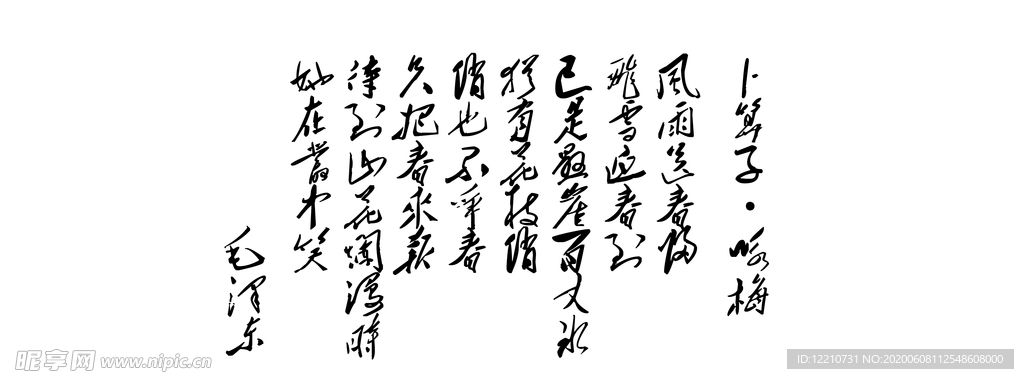 卜算子·咏梅
風雨送春歸
飛雪迎春到
已是懸崖百丈冰
猶有花枝俏
俏也不爭春
只把春來報
待到山花爛漫時
她在叢中笑
毛澤东
昵享网 www.nipic.cn
ID:12210731 NO:20200608112548608000